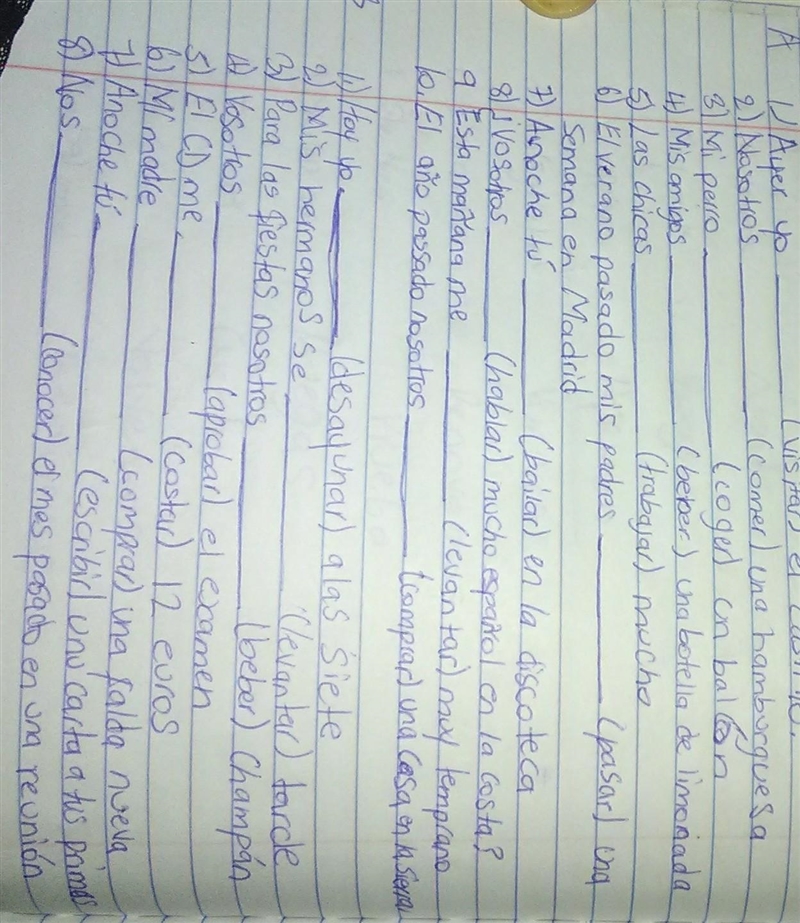 A 1) Ayer yo ______ (visitar) el
2) Nosotros ______ (comer) una hamburguesa
3) Mi perro ______ (coger) un balón
4) Mis amigos ______ (beber) una botella de limonada
5) Las chicas ______ (trabajar) mucho
6) El verano pasado mis padres ______ (pasar) una
semana en Madrid
7) Anoche tú ______ (bailar) en la discoteca
8) ¿Vosotros ______ (hablar) mucho español en la costa?
9 Esta mañana me ______ (levantar) muy temprano
10. El año passado nosotros ______ (comprar) una casa en la sierra
1) Hoy yo ______ (desayunar) a las siete
2) Mis hermanos se ______ (levantar) tarde
3) Para las fiestas nosotros ______ (beber) champán
4) Vosotros ______ (aprobar) el examen
5) El CD me ______ (costar) 12 euros
6) Mi madre ______ (comprar) una falda nueva
7) Anoche tú ______ (escribir) una carta a tus primos
8) Nos ______ (conocer) el mes pasado en una reunión